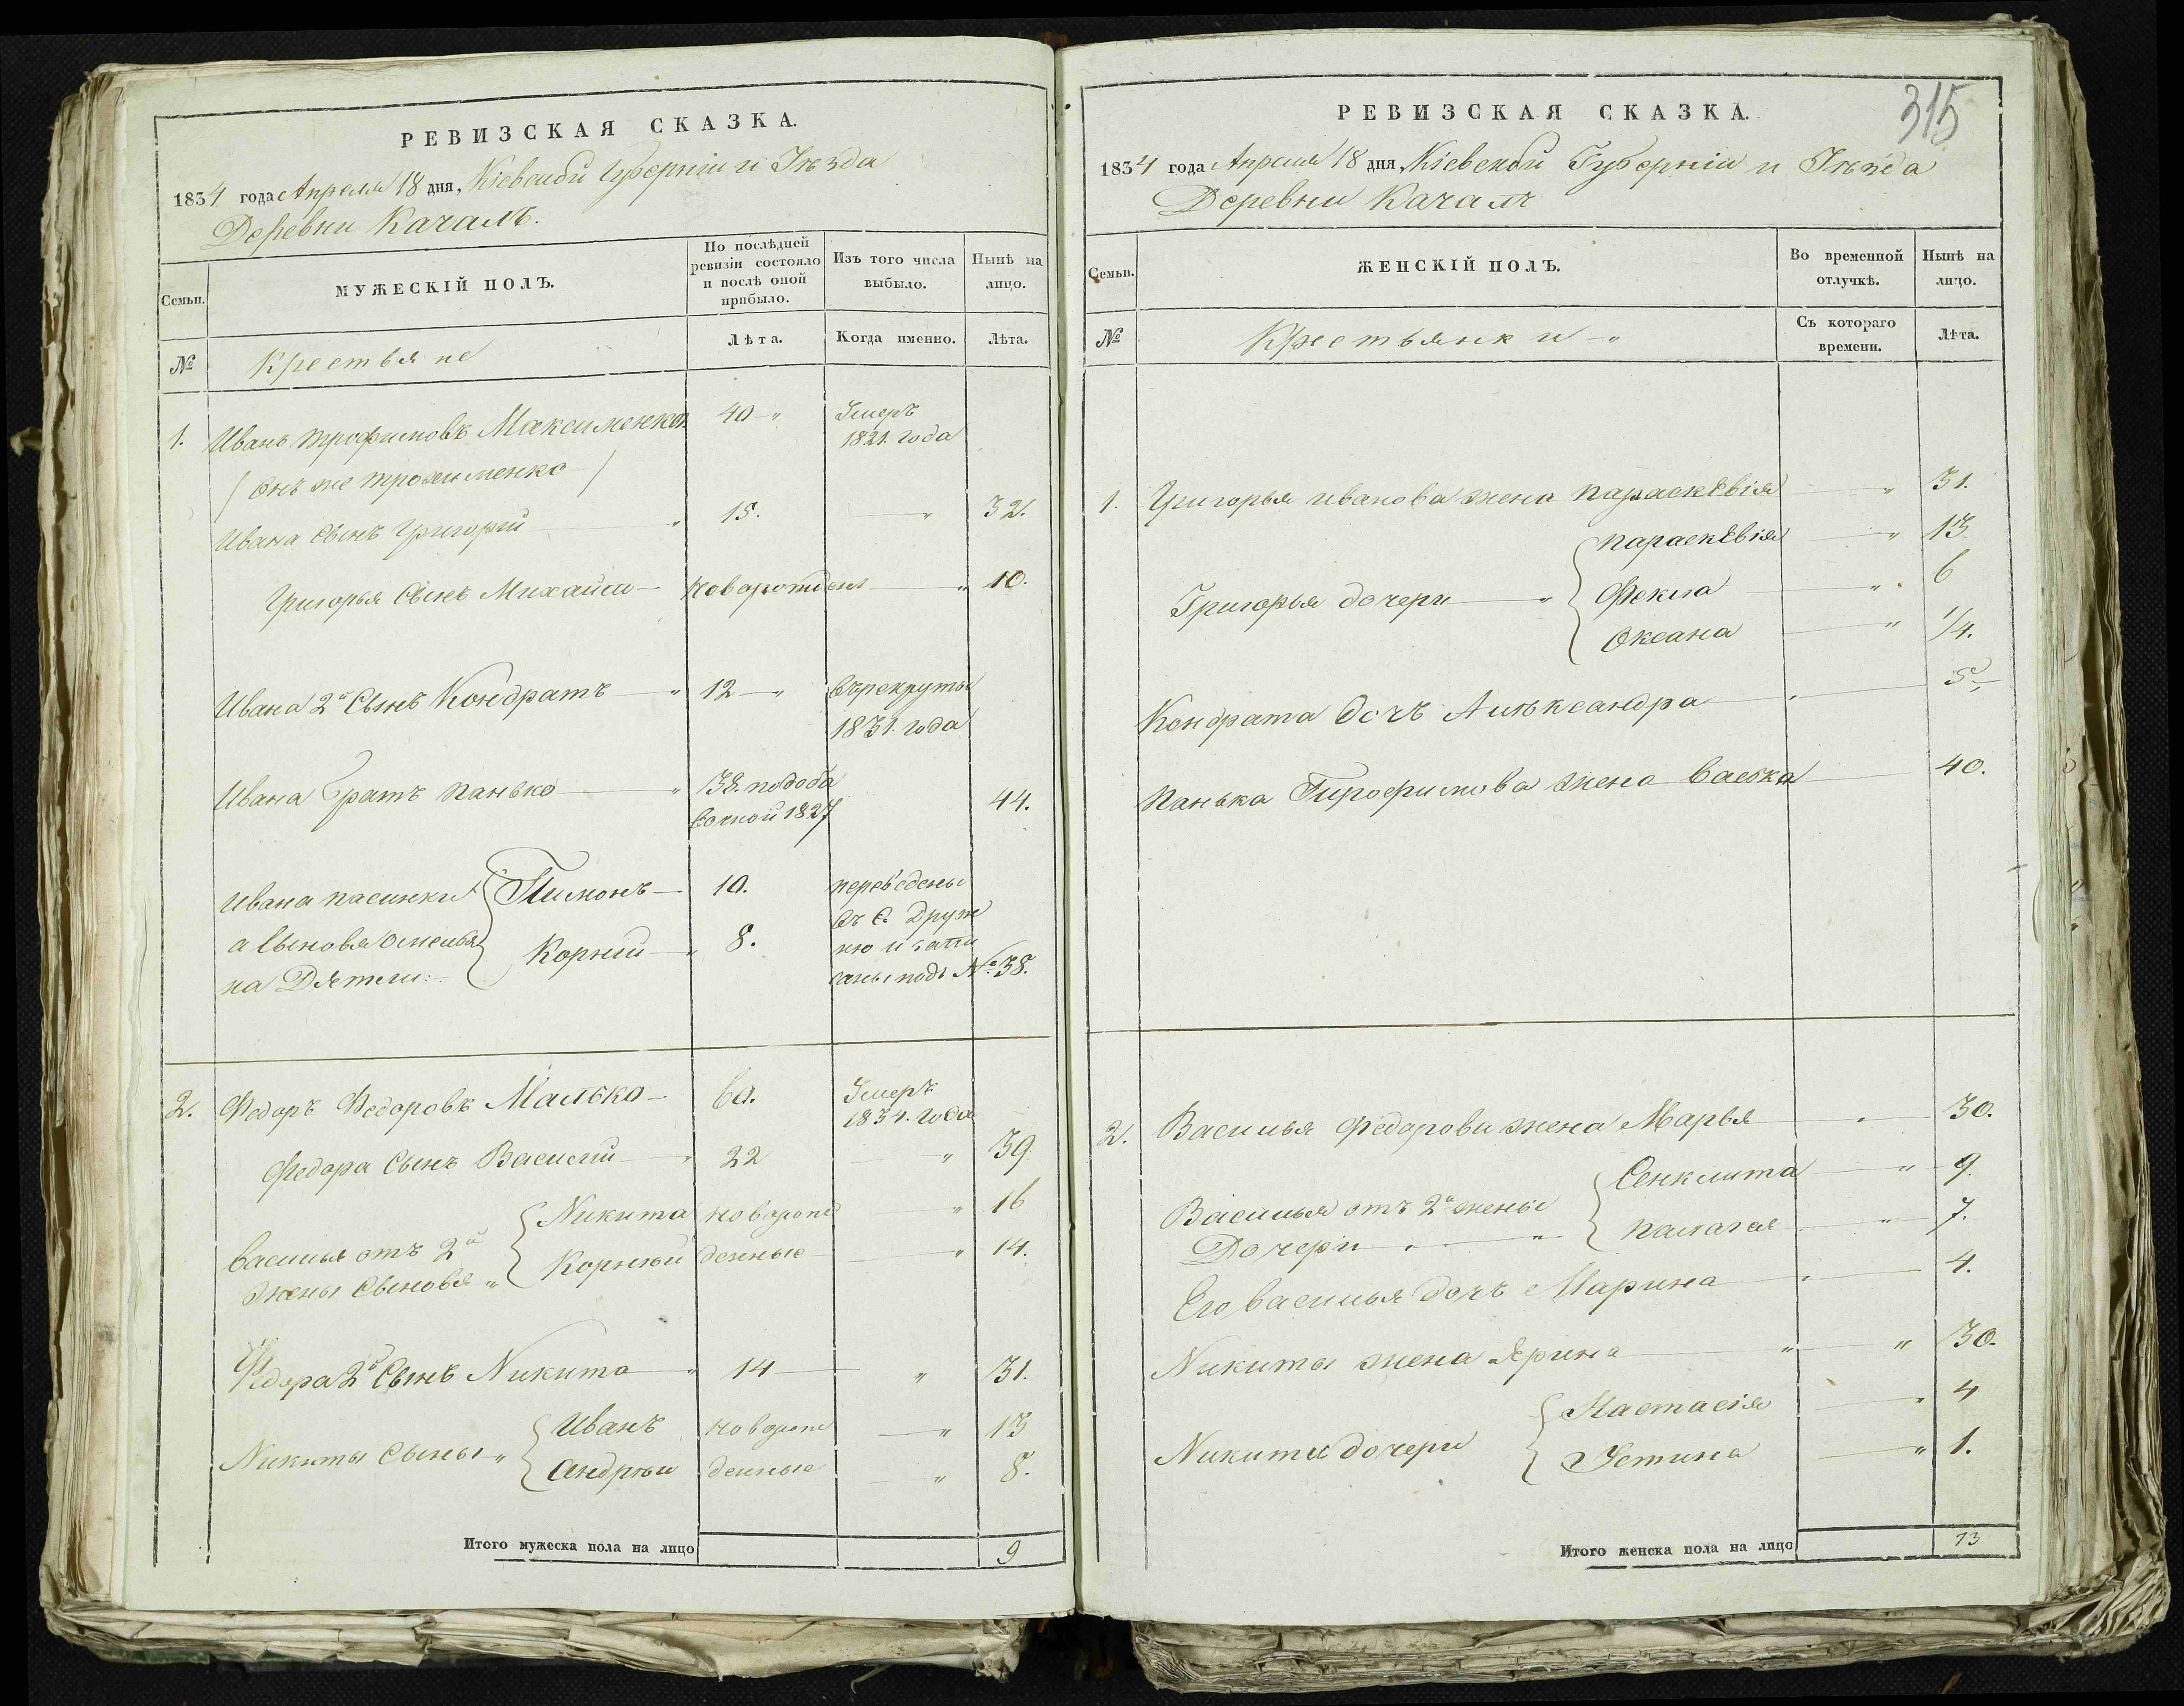 РЕВИЗСКАЯ СКАЗКА.
1834 года Апреля 18 дня, Кіевской Губерніи и Уѣзда
Деревни Качалъ.
Семьи.
МУЖЕСКІЙ ПОЛЪ.
По послѣдней
ревизіи состояло
и послѣ оной
прибыло.
Изъ того числа
выбыло.
Нынѣ на
лицо.
№
Крестьяне
Лѣта.
Когда именно.
Лѣта.
1. Иванъ Трофимовъ Максименко 40 Умеръ
1821. года
(Онъ же Трохименко)
Ивана Сынъ Григорій 15. " 32.
Григорья Сынъ Михайли Новорожден " 10.
Ивана 2й Сынъ Кондратъ " 12 " Въ рекруты
1831. года
Ивана Братъ Панько " 38. по доба
вочной 1827 44.
Ивана пасинки Пимонъ 10. переведены
а Сыновья Омелья Корній 8. въ С. Друж
на Дѣтели: ню и запи
саны подъ № 38.
2. Федоръ Федоровъ Малько 60. Умеръ
1834. года
Федора Сынъ Василій " 22 " 39.
Василья отъ 2й Никита новорож " 16
жены Сыновья " Корнѣй денные " 14.
Федора 2й Сынъ Никита " 14 " 31.
Никиты Сыны " Иванъ новорож " 13
Андрѣй денные " 8.
Итого мужеска пола на лицо 9
315
РЕВИЗСКАЯ СКАЗКА.
1834 года Апреля 18 дня, Кіевской Губерніи и Уѣзда
Деревни Качалъ
Семьи.
ЖЕНСКІЙ ПОЛЪ.
Во временной
отлучкѣ.
Нынѣ на
лицо.
№
Крестьянки "
Съ котораго
времени.
Лѣта.
1. Григорья Иванова жена Параскевія " 31.
Параскевія " 13.
Григорья дочери " Фекла " 6
Оксана " 1/4.
Кондрата дочъ Алѣксандра " 5.
Панька Трофимова жена Васька 40.
2. Василья Федорова жена Марья " 30.
Василья отъ 2й жены Сенклита " 9.
Дочери " Палагея " 7.
Его Василья дочъ Марина " 4.
Никиты жена Ярина " " 30.
Никиты дочери Настасія " 4
Устина " 1.
Итого женска пола на лицо 13